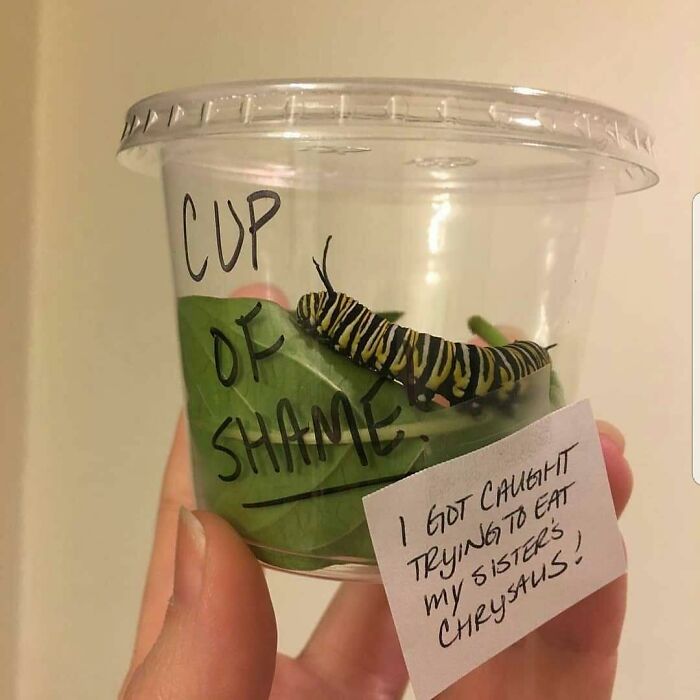 CUP
OF
SHAME!
I GOT CAUGHT
TRYING TO EAT
MY SISTER'S
CHRYSALIS!